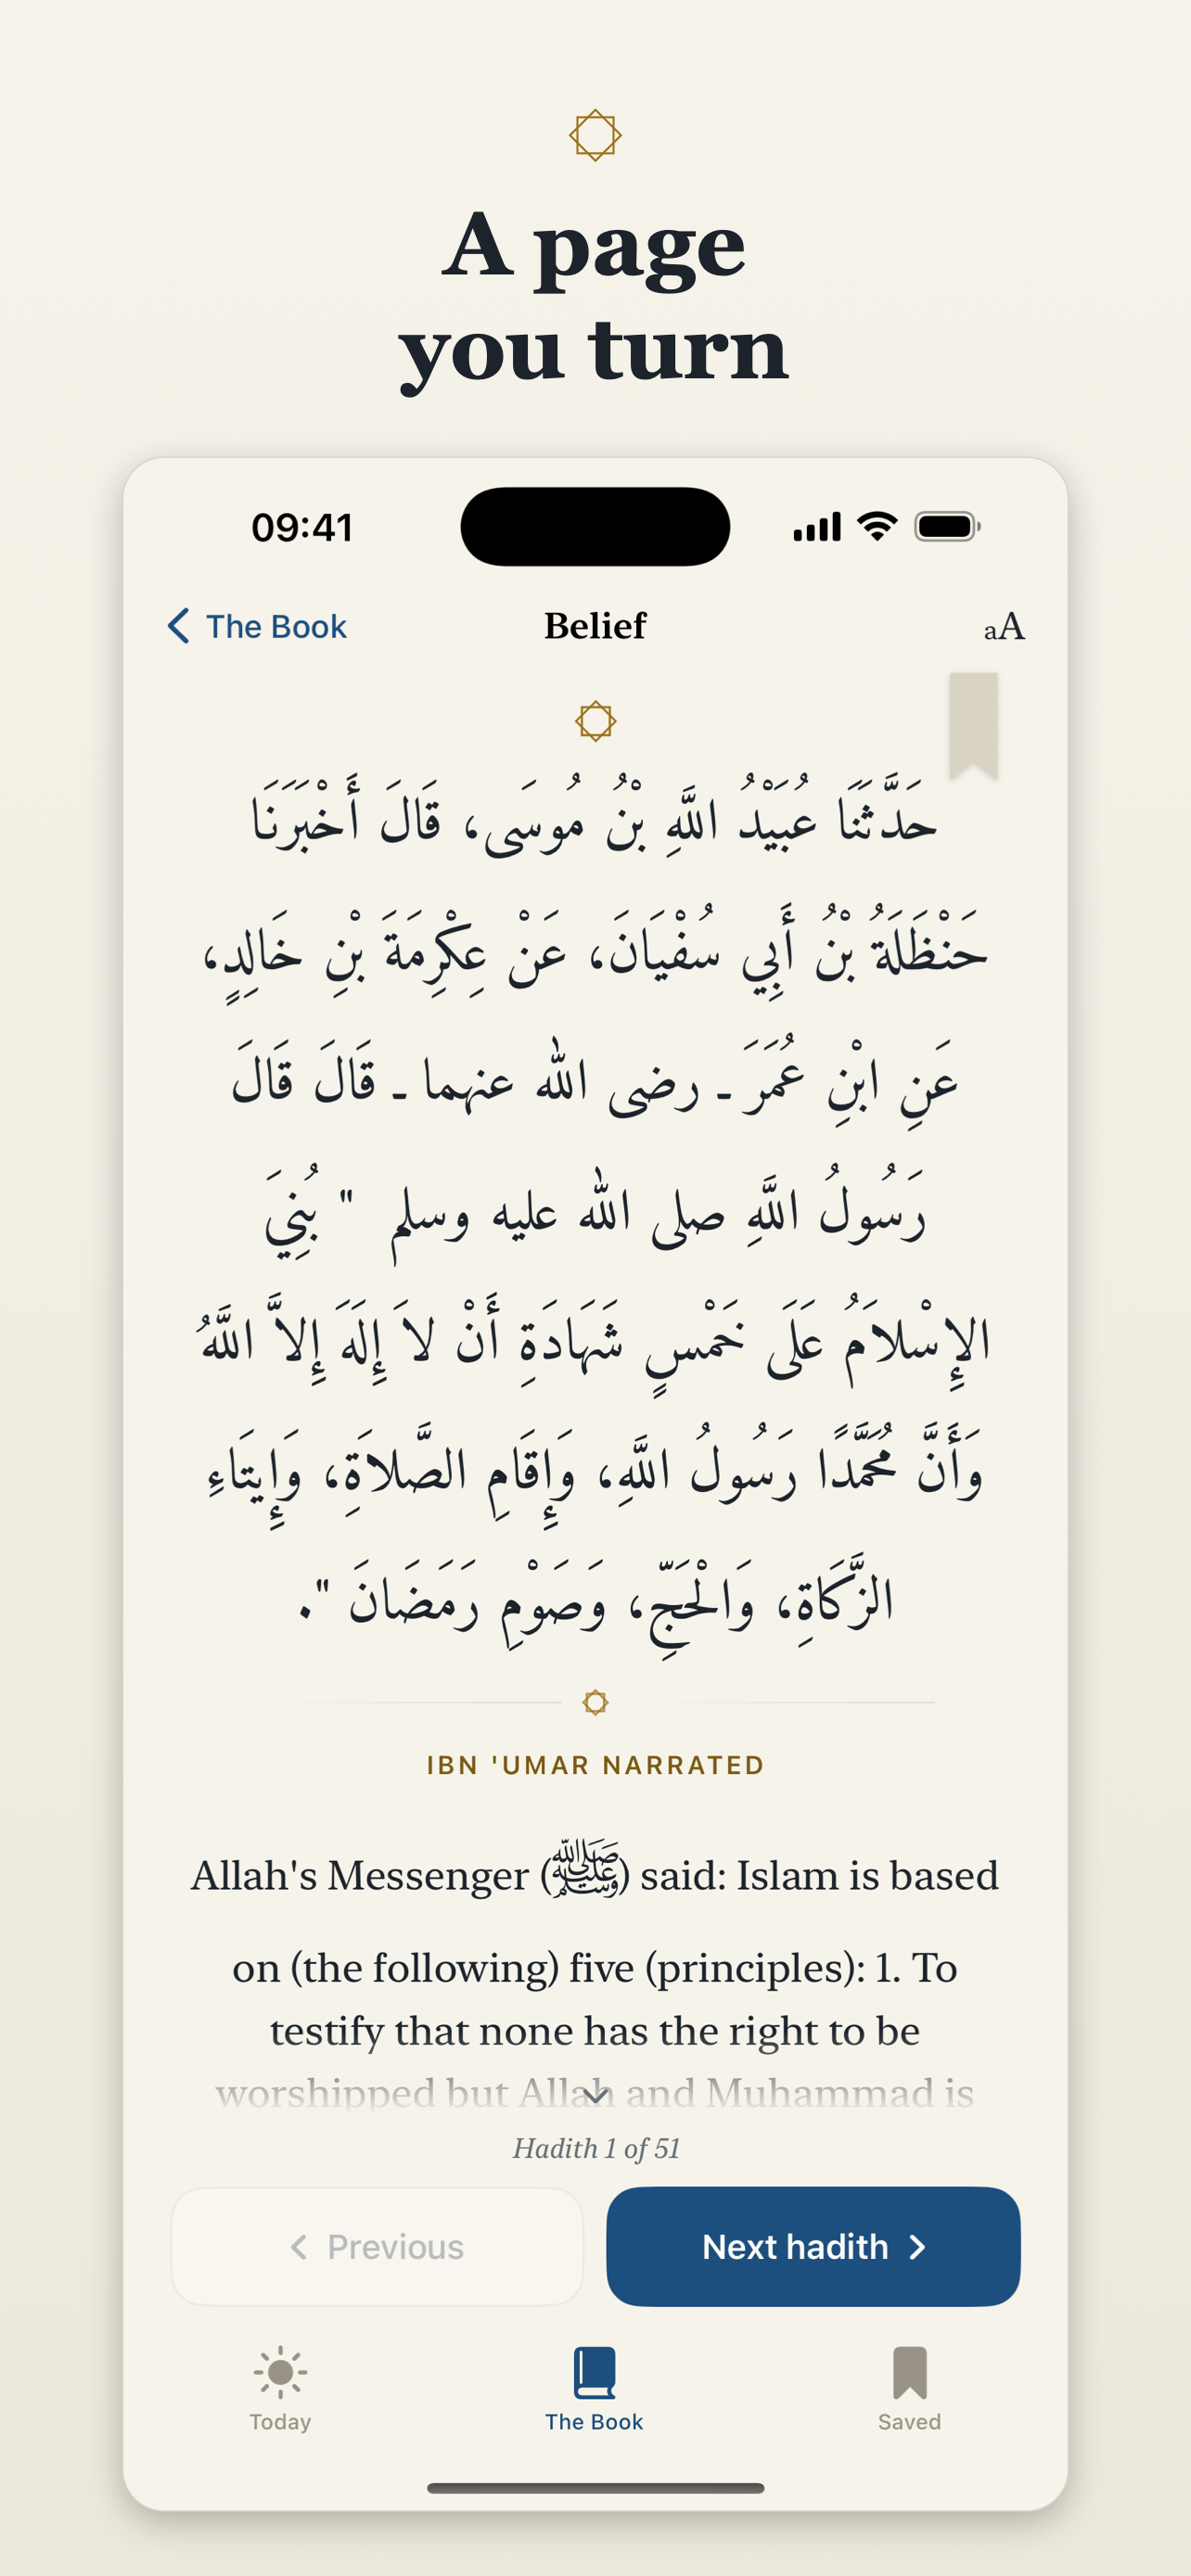 A page
you turn
09:41
The Book
Belief
aA
حَدَّثَنَا عُبَيْدُ اللَّهِ بْنُ مُوسَى، قَالَ أَخْبَرَنَا
حَنْظَلَةُ بْنُ أَبِي سُفْيَانَ، عَنْ عِكْرِمَةَ بْنِ خَالِدٍ،
عَنِ ابْنِ عُمَرَ ـ رضى الله عنهما ـ قَالَ قَالَ
رَسُولُ اللَّهِ صلى الله عليه وسلم " بُنِيَ
الإِسْلاَمُ عَلَى خَمْسٍ شَهَادَةِ أَنْ لاَ إِلَهَ إِلاَّ اللَّهُ
وَأَنَّ مُحَمَّدًا رَسُولُ اللَّهِ، وَإِقَامِ الصَّلاَةِ، وَإِيتَاءِ
الزَّكَاةِ، وَالْحَجِّ، وَصَوْمِ رَمَضَانَ ".
IBN 'UMAR NARRATED
Allah's Messenger (ﷺ) said: Islam is based
on (the following) five (principles): 1. To
testify that none has the right to be
worshipped but Allah and Muhammad is
Hadith 1 of 51
Previous
Next hadith
Today
The Book
Saved